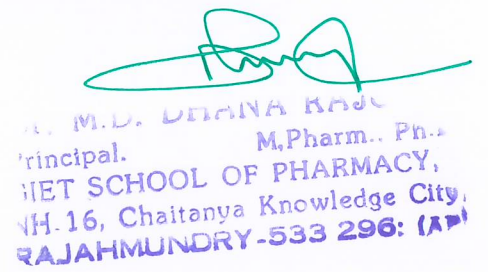 M.D. DHANA RAJU
Principal. M,Pharm.. Ph.
GIET SCHOOL OF PHARMACY,
NH-16, Chaitanya Knowledge City,
RAJAHMUNDRY-533 296: (AP)